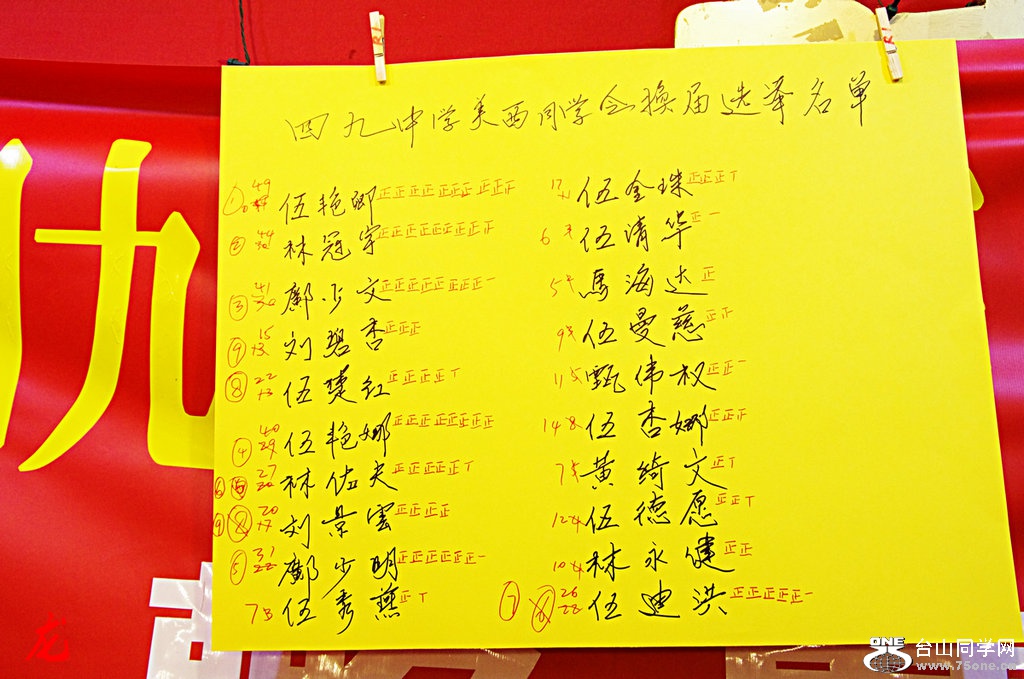 四九中学美西同学会换届选举名单
① 49 伍艳卿 正正正正正正正正正正
② 44 林冠宇 正正正正正正正正正
③ 41 鄺少文 正正正正正正正正一
⑨ 15 刘碧杏 正正正
⑧ 22 伍楚红 正正正正丅
④ 40 伍艳娜 正正正正正正正正
⑥ 27 林佐夫 正正正正正丅
⑨ 20 刘景雲 正正正正
⑤ 31 鄺少明 正正正正正正一
7 伍秀燕 正丅
17 伍金珠 正正正丅
6 伍清华 正一
5 馬海达 正
9 伍曼慈 正正
11 甄伟权 正正一
14 伍杏娜 正正正
7 黄绮文 正丅
12 伍德愿 正正丅
10 林永健 正正
⑦ 26 伍迪洪 正正正正正一
九
龙
ONE
台山同学网
www.75one.cn